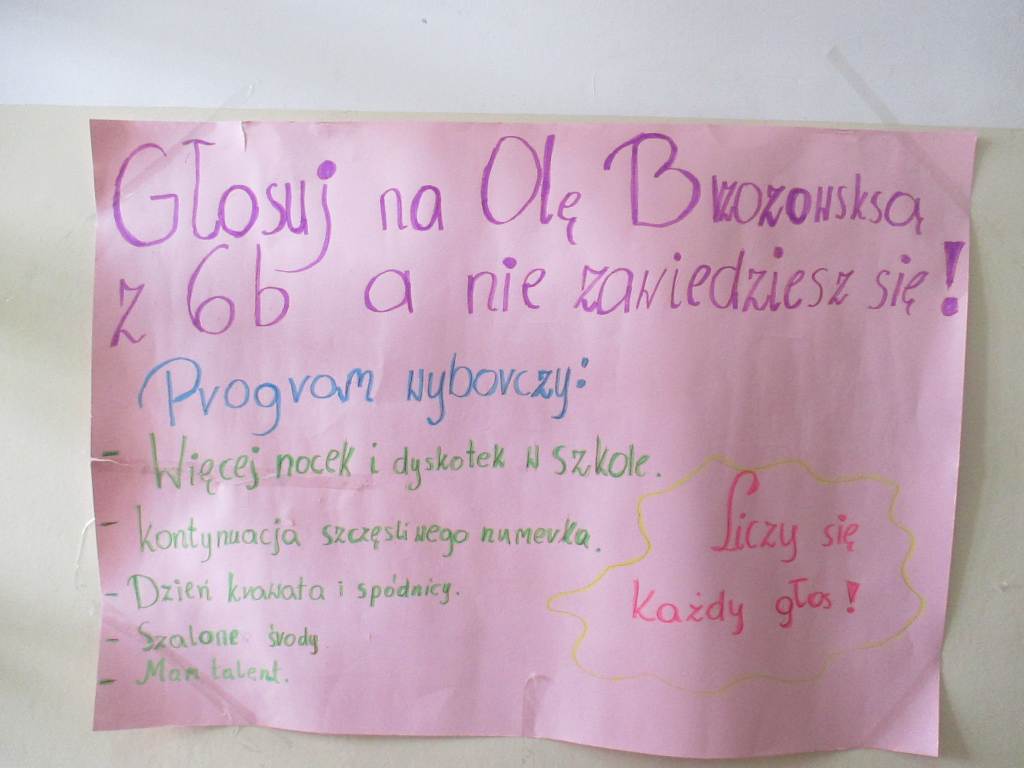 Głosuj na Olę Brzozowsksą
z 6b a nie zawiedziesz się!
Program wyborczy:
- Więcej nocek i dyskotek w szkole.
- kontynuacja szczęsliwego numerka.
- Dzień krawata i spódnicy.
- Szalone środy
- Mam talent.
Liczy się
każdy głos!